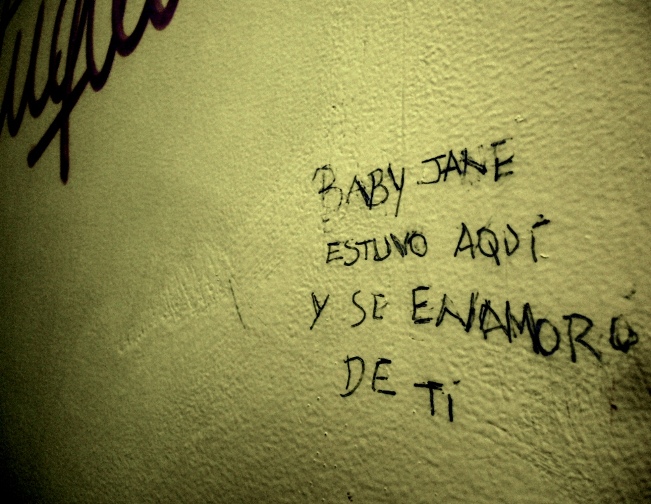 BABY JANE
ESTUVO AQUÍ
Y SE ENAMORÓ
DE TÍ